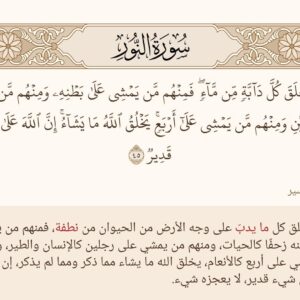 سُورَةُ النُّورِ
لَقَ كُلَّ دَآبَّةٍ مِّن مَّآءٍ ۖ فَمِنْهُم مَّن يَمْشِى عَلَىٰ بَطْنِهِۦ وَمِنْهُم مَّن
وَمِنْهُم مَّن يَمْشِى عَلَىٰٓ أَرْبَعٍ ۚ يَخْلُقُ ٱللَّهُ مَا يَشَآءُ ۚ إِنَّ ٱللَّهَ عَلَىٰ
قَدِيرٌ ٤٥
لق كل ما يدبّ على وجه الأرض من الحيوان من نطفة، فمنهم من
نه زحفًا كالحيات، ومنهم من يمشي على رجلين كالإنسان والطير، و
ي على أربع كالأنعام، يخلق الله ما يشاء مما ذكر ومما لم يذكر، إن
شيء قدير، لا يعجزه شيء.